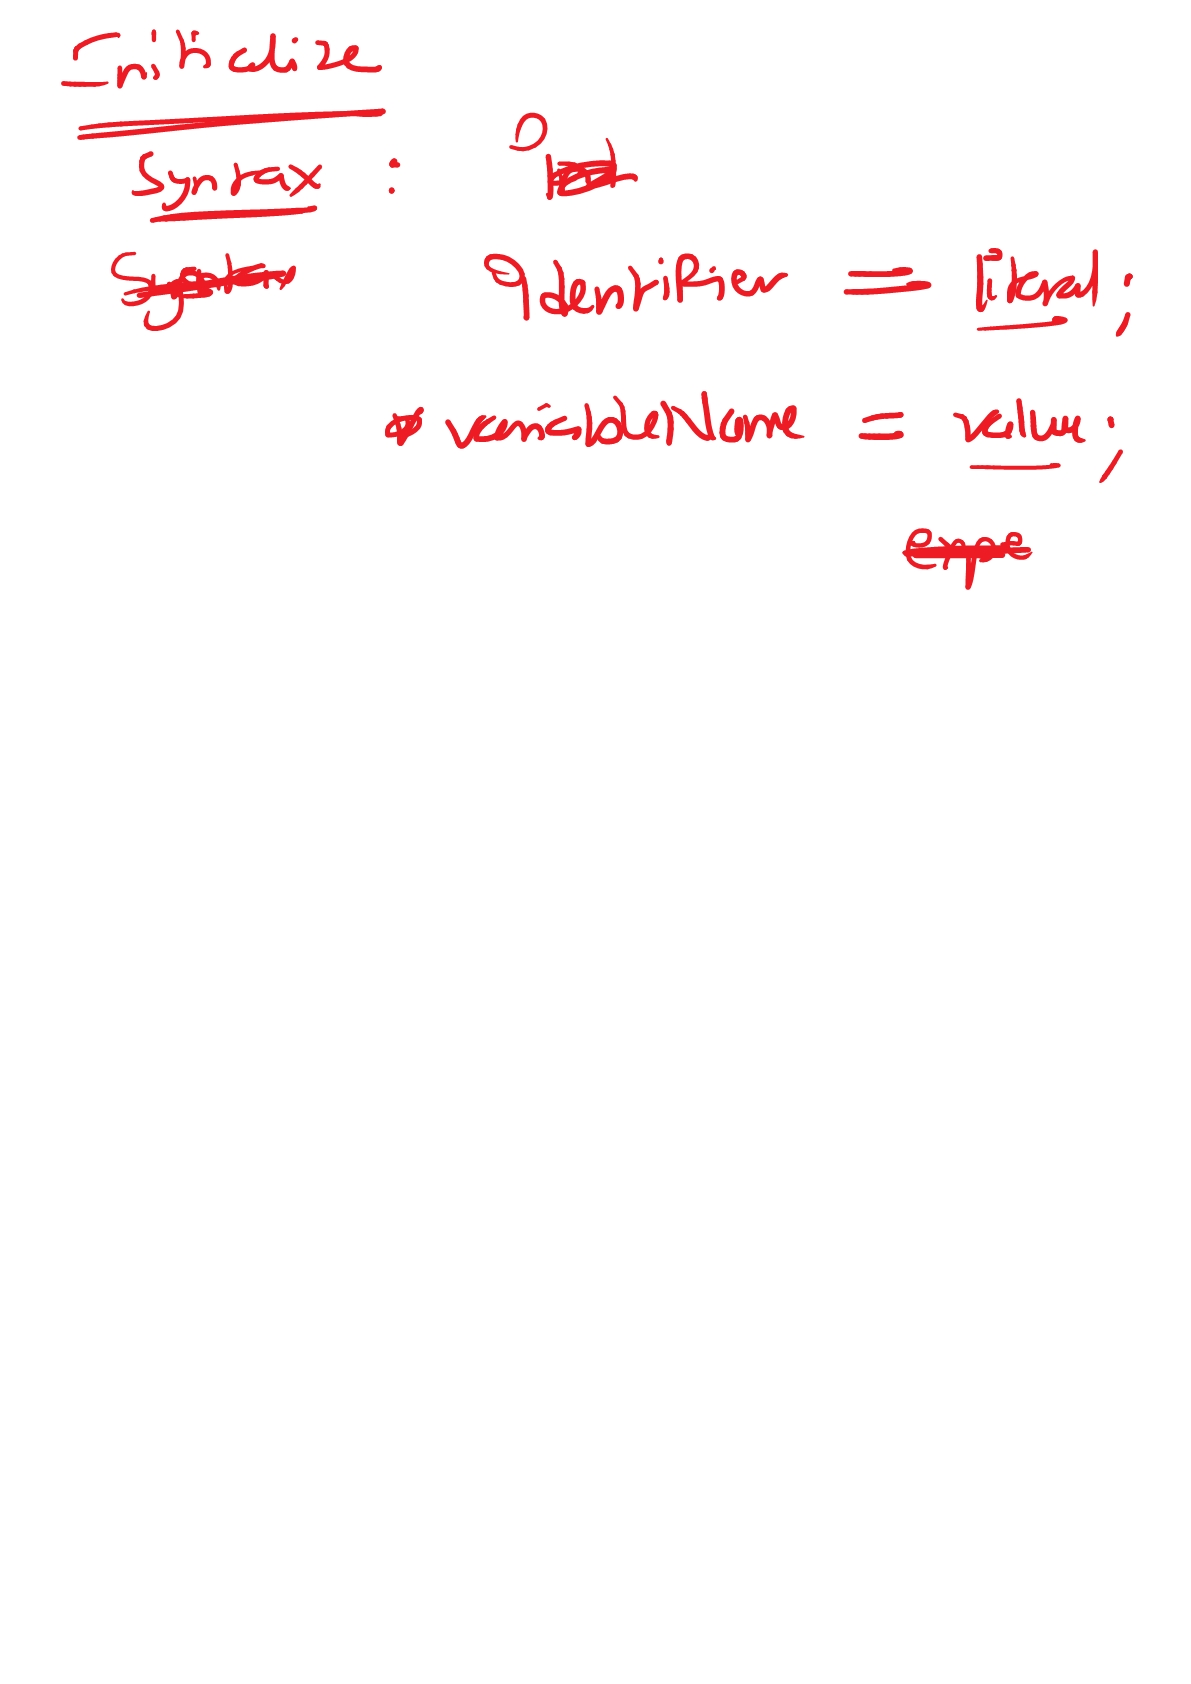 Initialize
Syntax :
Identifier = literal;
* variableName = value;